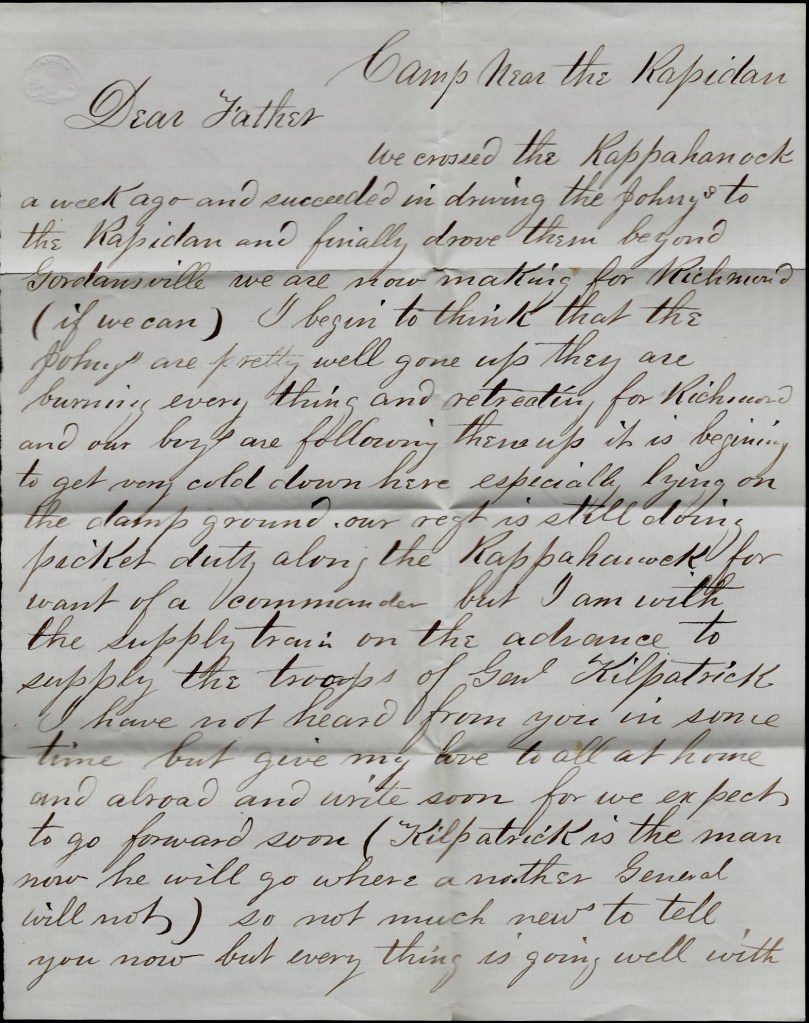 Camp Near the Rapidan
Dear Father
We crossed the Rappahanock
a week ago and succeeded in driving the Johnys to
the Rapidan and finally drove them beyond
Gordansville we are now making for Richmond
(if we can) I begin to think that the
Johnys are pretty well gone up they are
burning every thing and retreating for Richmond
and our boys are following them up it is begining
to get very cold down here especially lying on
the damp ground. our regt is still doing
picket duty along the Rappahanock for
want of a commander but I am with
the supply train on the advance to
supply the troops of Genl Kilpatrick
I have not heard from you in some
time but give my love to all at home
and abroad and write soon for we expect
to go forward soon (Kilpatrick is the man
now he will go where another General
will not) so not much news to tell
you now but every thing is going well with